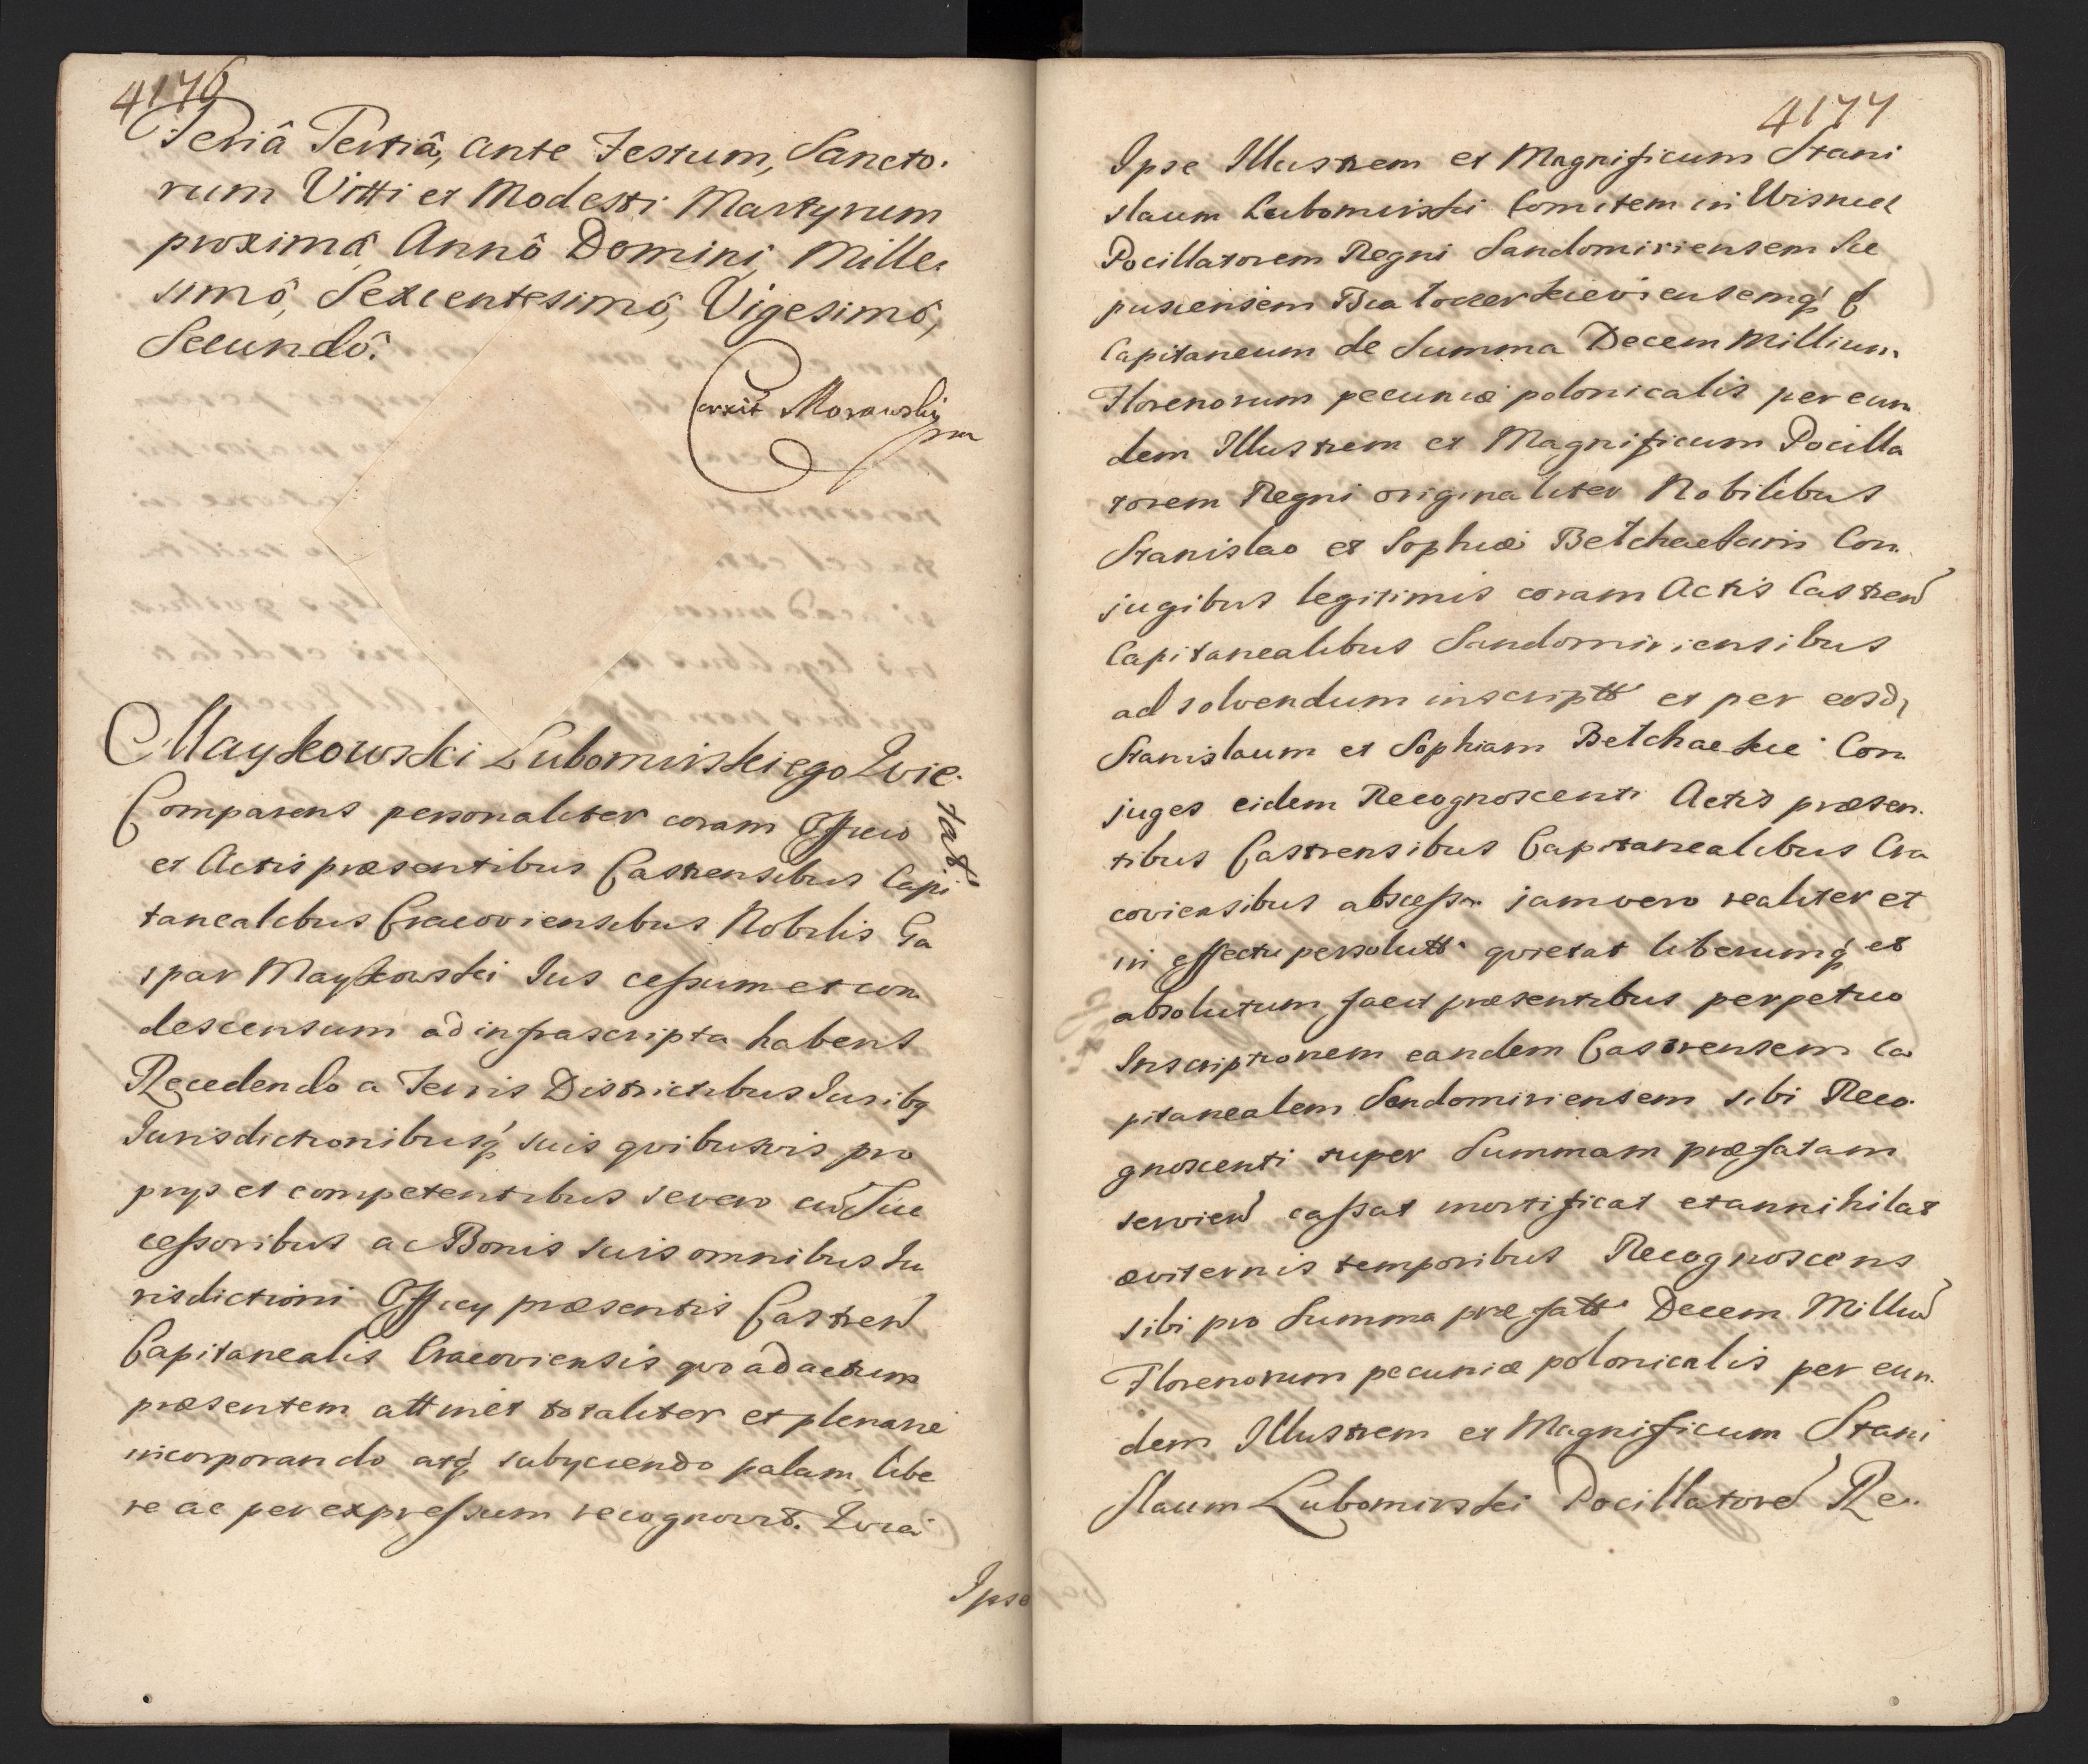 4176
Feriâ Tertiâ, ante Festum, Sancto.
rum Vitti et Modesti Martyrum
proximâ Annô Domini Mille.
simô, Sexcentesimô, Vigesimô,
Secundô.
Corexit Morawsky
mp
Mayskowski Lubomirskiego Qvie.
tat.
Comparens personaliter coram Officio
et Actis præsentibus Castrensibus Capi
tanealibus Cracoviensibus Nobilis Ga
spar Mayskowski Jus cessum et con
descensum ad infrascripta habens
Recedendo a Terris Districtibus Juribq
Jurisdictionibusq suis qvibusvis pro
prys et competentibus se vero cum Suc
cessoribus ac Bonis suis omnibus Ju
risdictioni Officy præsentis Castren
Capitanealis Cracoviensis qvo ad actum
præsentem attinet totaliter et plenarie
incorporando atq subyciendo palam libe
re ac per expressum recognovit. Qvia
Ipse
4177
Ipse Illustrem et Magnificum Stani
slaum Lubomirski Comitem in Wisnicz
Pocillatorem Regni Sandomiriensem Sce
pusiensem Biatocerkieviensemq
Capitaneum de Summa Decem Millium
Florenorum pecuniæ polonicalis per eun
dem Illustrem et Magnificum Pocilla
torem Regni originaliter Nobilibus
Stanislao et Sophiæ Betchackim Con.
jugibus legitimis coram Actis Castren
Capitanealibus Sandomiriensibus
ad solvendum inscriptt et per eosd,
Stanislaum et Sophiam Betchackie Con
juges eidem Recognoscenti Actis præsen.
tibus Castrensibus Capitanealibus Cra
coviensibus abscessa jam vero realiter et
in effectu persolutt qvietat liberumq et
absolutum facit præsentibus perpetuo
Inscriptionem eandem Castrensem Ca
pitanealem Sendomiriensem sibi Reco.
gnoscenti super Summam præfatam
servien cassat mortificat et annihilat
æviternis temporibus Recognoscens
sibi pro Summa præfatt Decem Milliu
Florenorum pecuniæ polonicalis per eun.
dem Illustrem et Magnificum Stani
slaum Lubomirski Pocillatore Re..